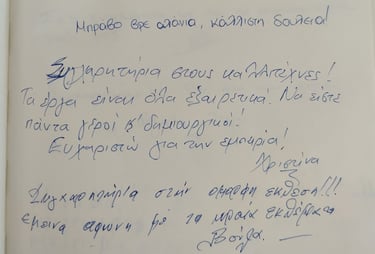 Μπράβο βρε αλάνια, κάλλιστη δουλειά!
Συγχαρητήρια στους καλλιτέχνες!
Τα έργα είναι όλα εξαιρετικά. Να είστε
πάντα γεροί κ' δημιουργικοί!
Ευχαριστώ για την εμπειρία!
Χριστίνα
Συγχαρητήρια στην όμορφη έκθεση!!!
έμεινα άφωνη με τα ωραία εκθέματα
Βούλα.